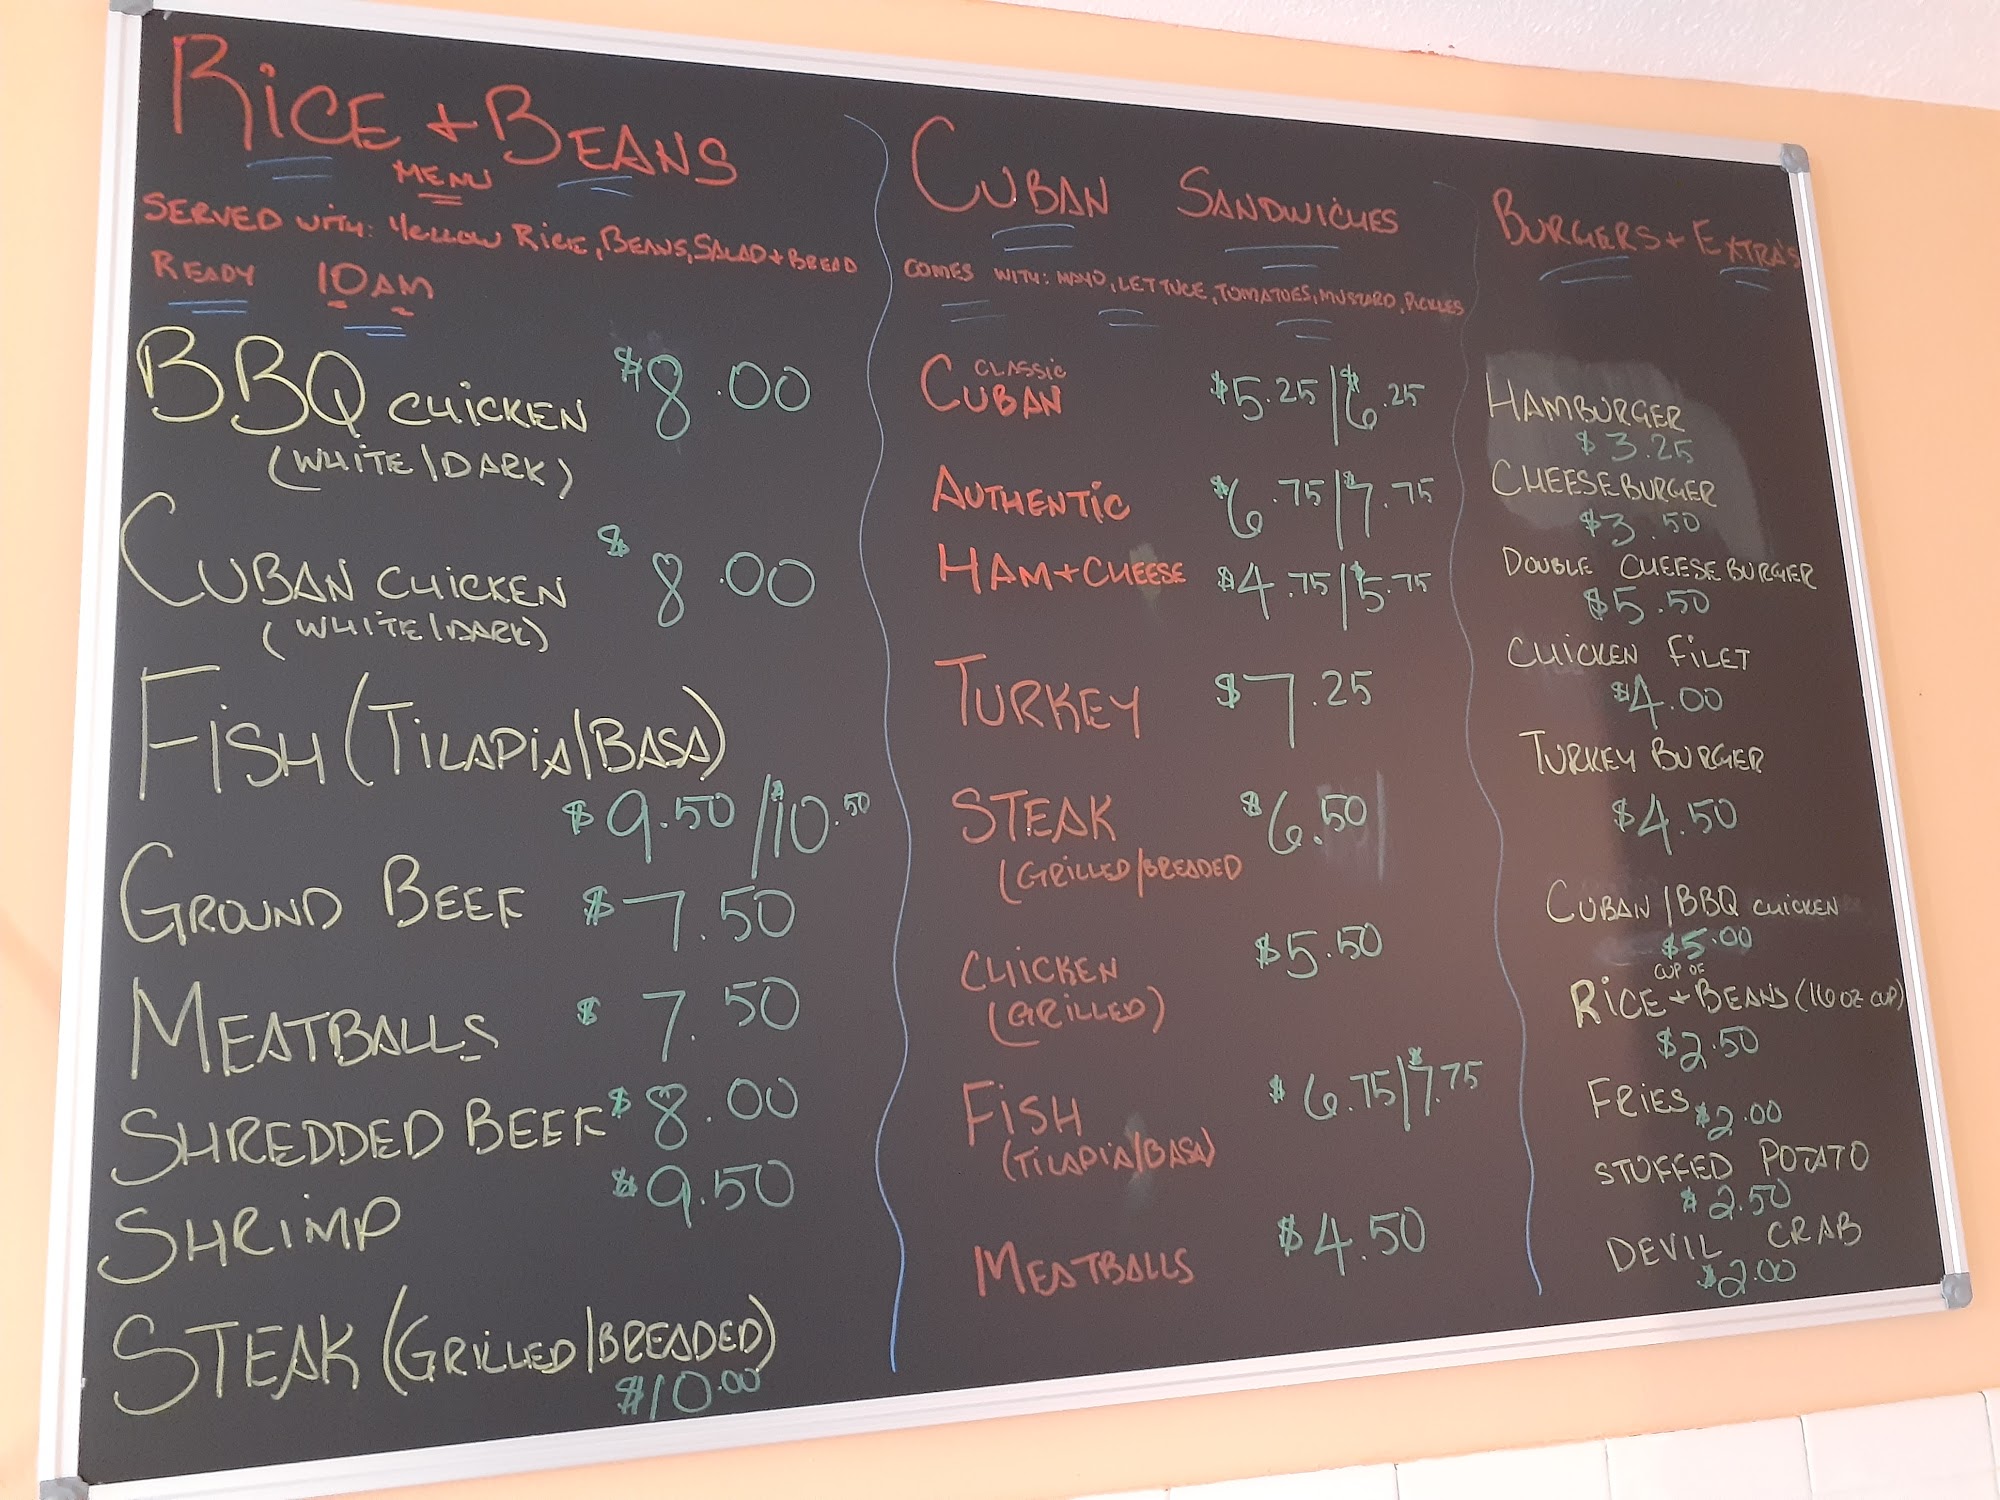 RICE + BEANS
MENU
SERVED WITH: YELLOW RICE, BEANS, SALAD + BREAD
READY 10AM
BBQ CHICKEN $8.00
(WHITE/DARK)
CUBAN CHICKEN $8.00
(WHITE/DARK)
FISH (TILAPIA/BASA)
$9.50/$10.50
GROUND BEEF $7.50
MEATBALLS $7.50
SHREDDED BEEF $8.00
SHRIMP $9.50
STEAK (GRILLED/BREADED)
$10.00
CUBAN SANDWICHES
COMES WITH: MAYO, LETTUCE, TOMATOES, MUSTARD, PICKLES
CLASSIC
CUBAN $5.25/$6.25
AUTHENTIC $6.75/$7.75
HAM + CHEESE $4.75/$5.75
TURKEY $7.25
STEAK $6.50
(GRILLED/BREADED
CHICKEN $5.50
(GRILLED)
FISH $6.75/$7.75
(TILAPIA/BASA)
MEATBALLS $4.50
BURGERS + EXTRA'S
HAMBURGER
$3.25
CHEESEBURGER
$3.50
DOUBLE CHEESEBURGER
$5.50
CHICKEN FILET
$4.00
TURKEY BURGER
$4.50
CUBAN/BBQ CHICKEN
$5.00
CUP OF
RICE + BEANS (16 OZ CUP)
$2.50
FRIES $2.00
STUFFED POTATO
$2.50
DEVIL CRAB
$2.00